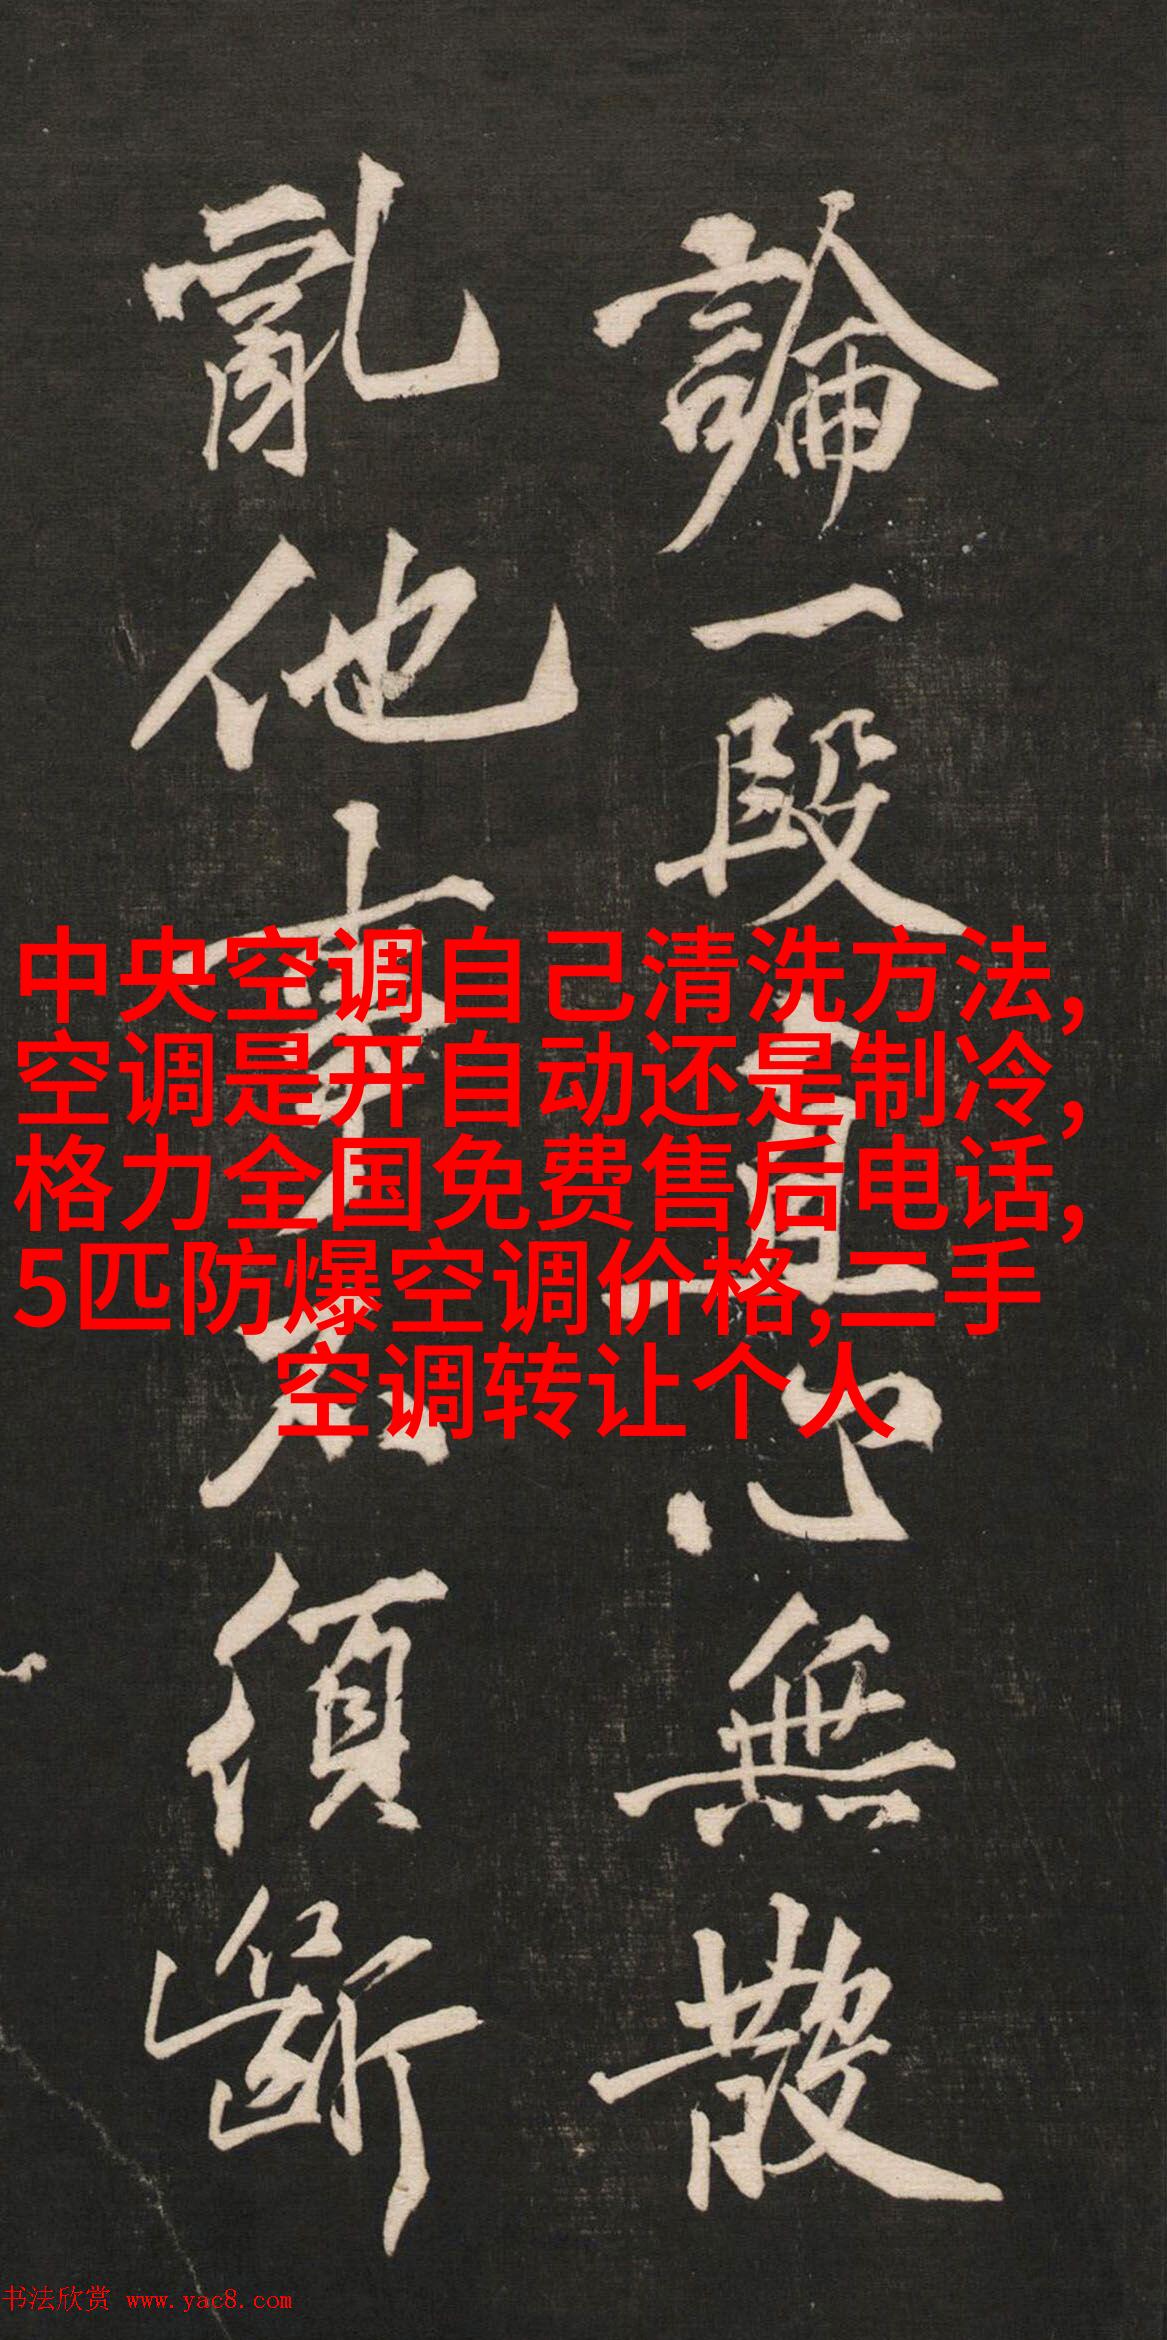 論一段直心無散
亂他事須斷
中央空调自己清洗方法,
空调是开自动还是制冷,
格力全国免费售后电话,
5匹防爆空调价格,二手
空调转让个人
书法欣赏 www.yac8.com